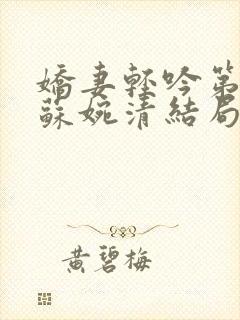 嬌妻輕吟第
蘇婉清結局
黃碧梅